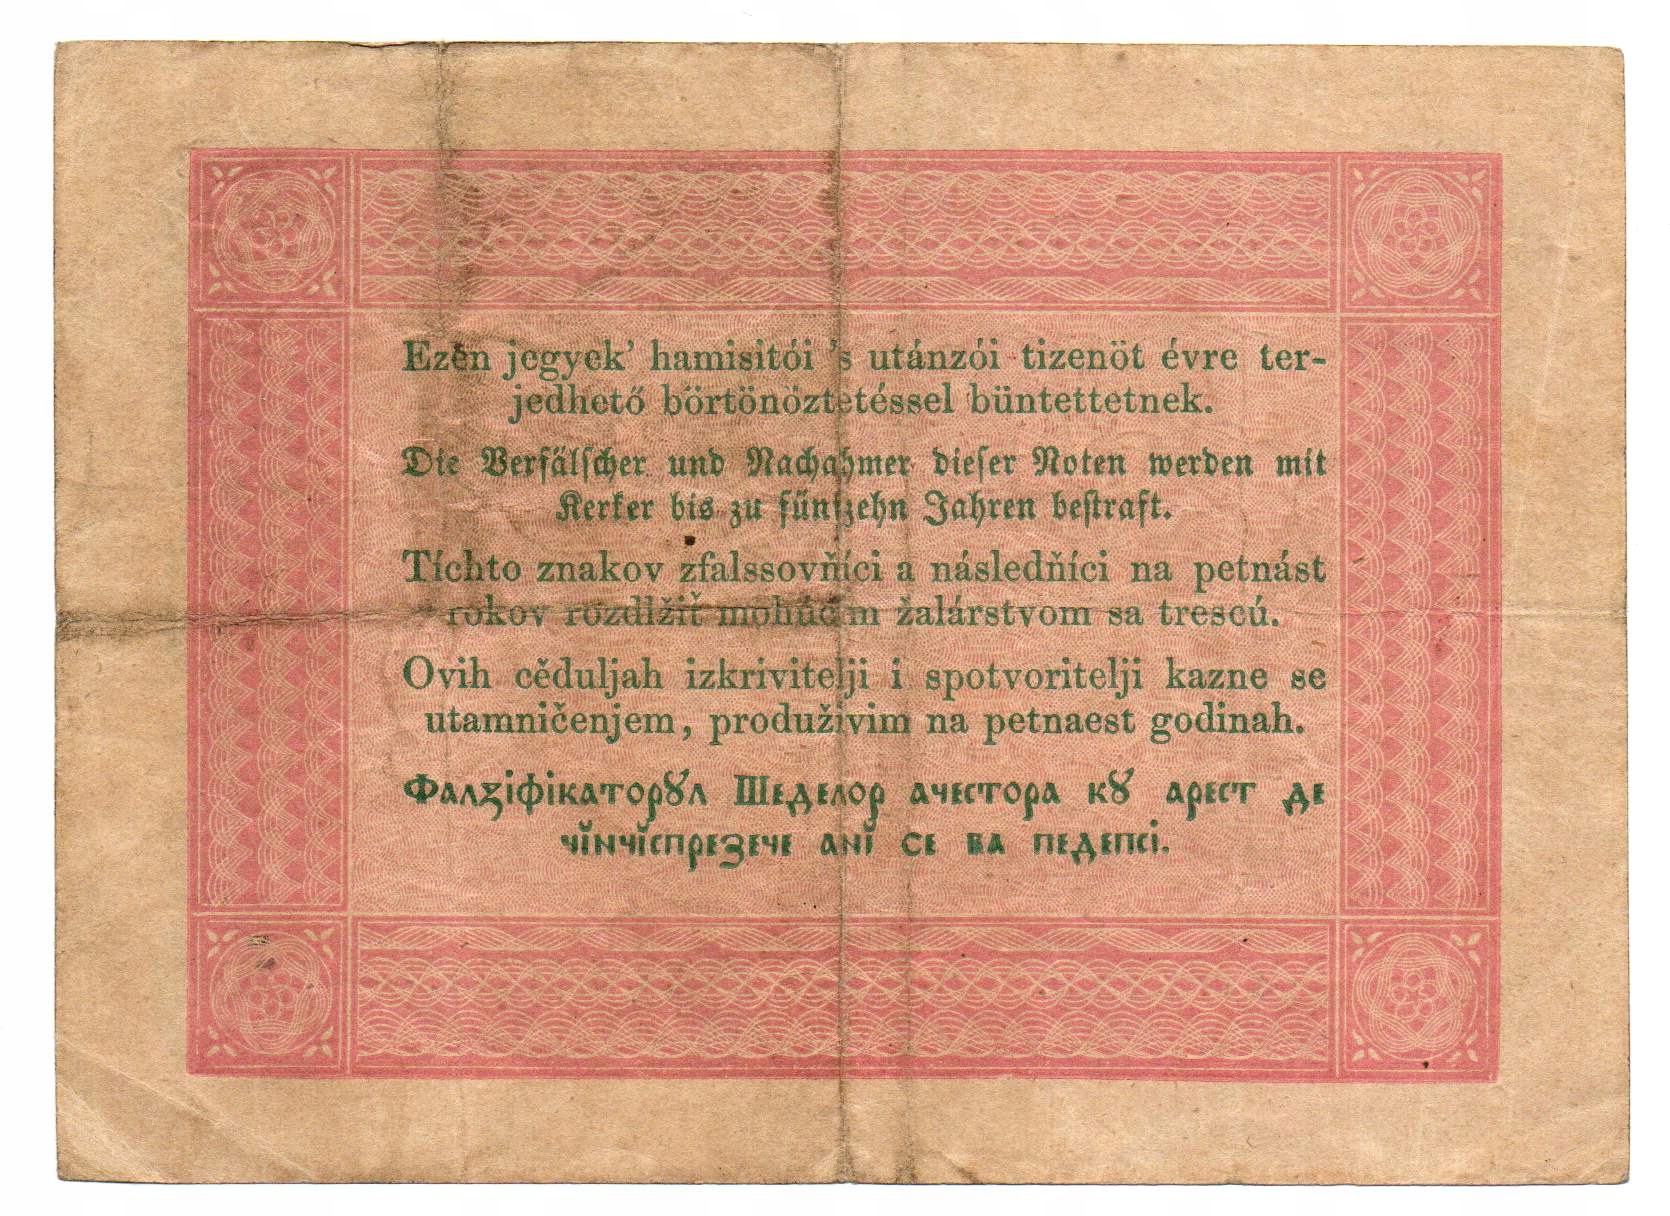 Ezen jegyek’ hamisitói ’s utánzói tizenöt évre ter-
jedhető börtönöztetéssel büntettetnek.
Die Verfälscher und Nachahmer dieser Noten werden mit
Kerker bis zu fünfzehn Jahren bestraft.
Tíchto znakov zfalssovňíci a následňíci na petnást
rokov rozdlžiť mohúcim žalárstvom sa trescú.
Ovih cěduljah izkrivitelji i spotvoritelji kazne se
utamničenjem, produživim na petnaest godinah.
Фалзіфікаторꙋл Шеделор ачестора кꙋ арест де
чĭнчĭспрезече анĭ се ва педепсі.